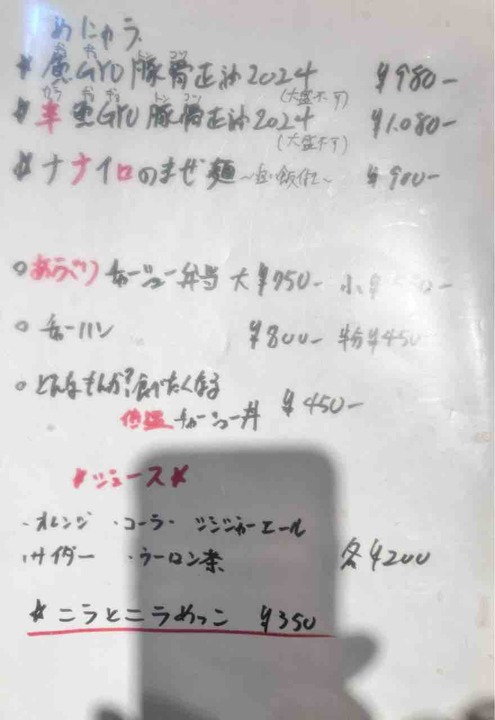 めにゅう
★ 魚GYO豚骨正油2024 ¥980-
(大盛不可)
★ 辛魚GYO豚骨正油2024 ¥1.080-
(大盛不可)
★ ナナイロのまぜ麺 ¥900-
○ チャーシュー弁当 大¥750- 小
○ チャーハン ¥800- 半分¥450
○ どんなもんか?食べたくなる
チャーシュー丼 ¥450-
★ジュース★
・オレンジ ・コーラ・ ジンジャーエール
・サイダー ・ウーロン茶 各¥200
★ニラとニラめっこ ¥350